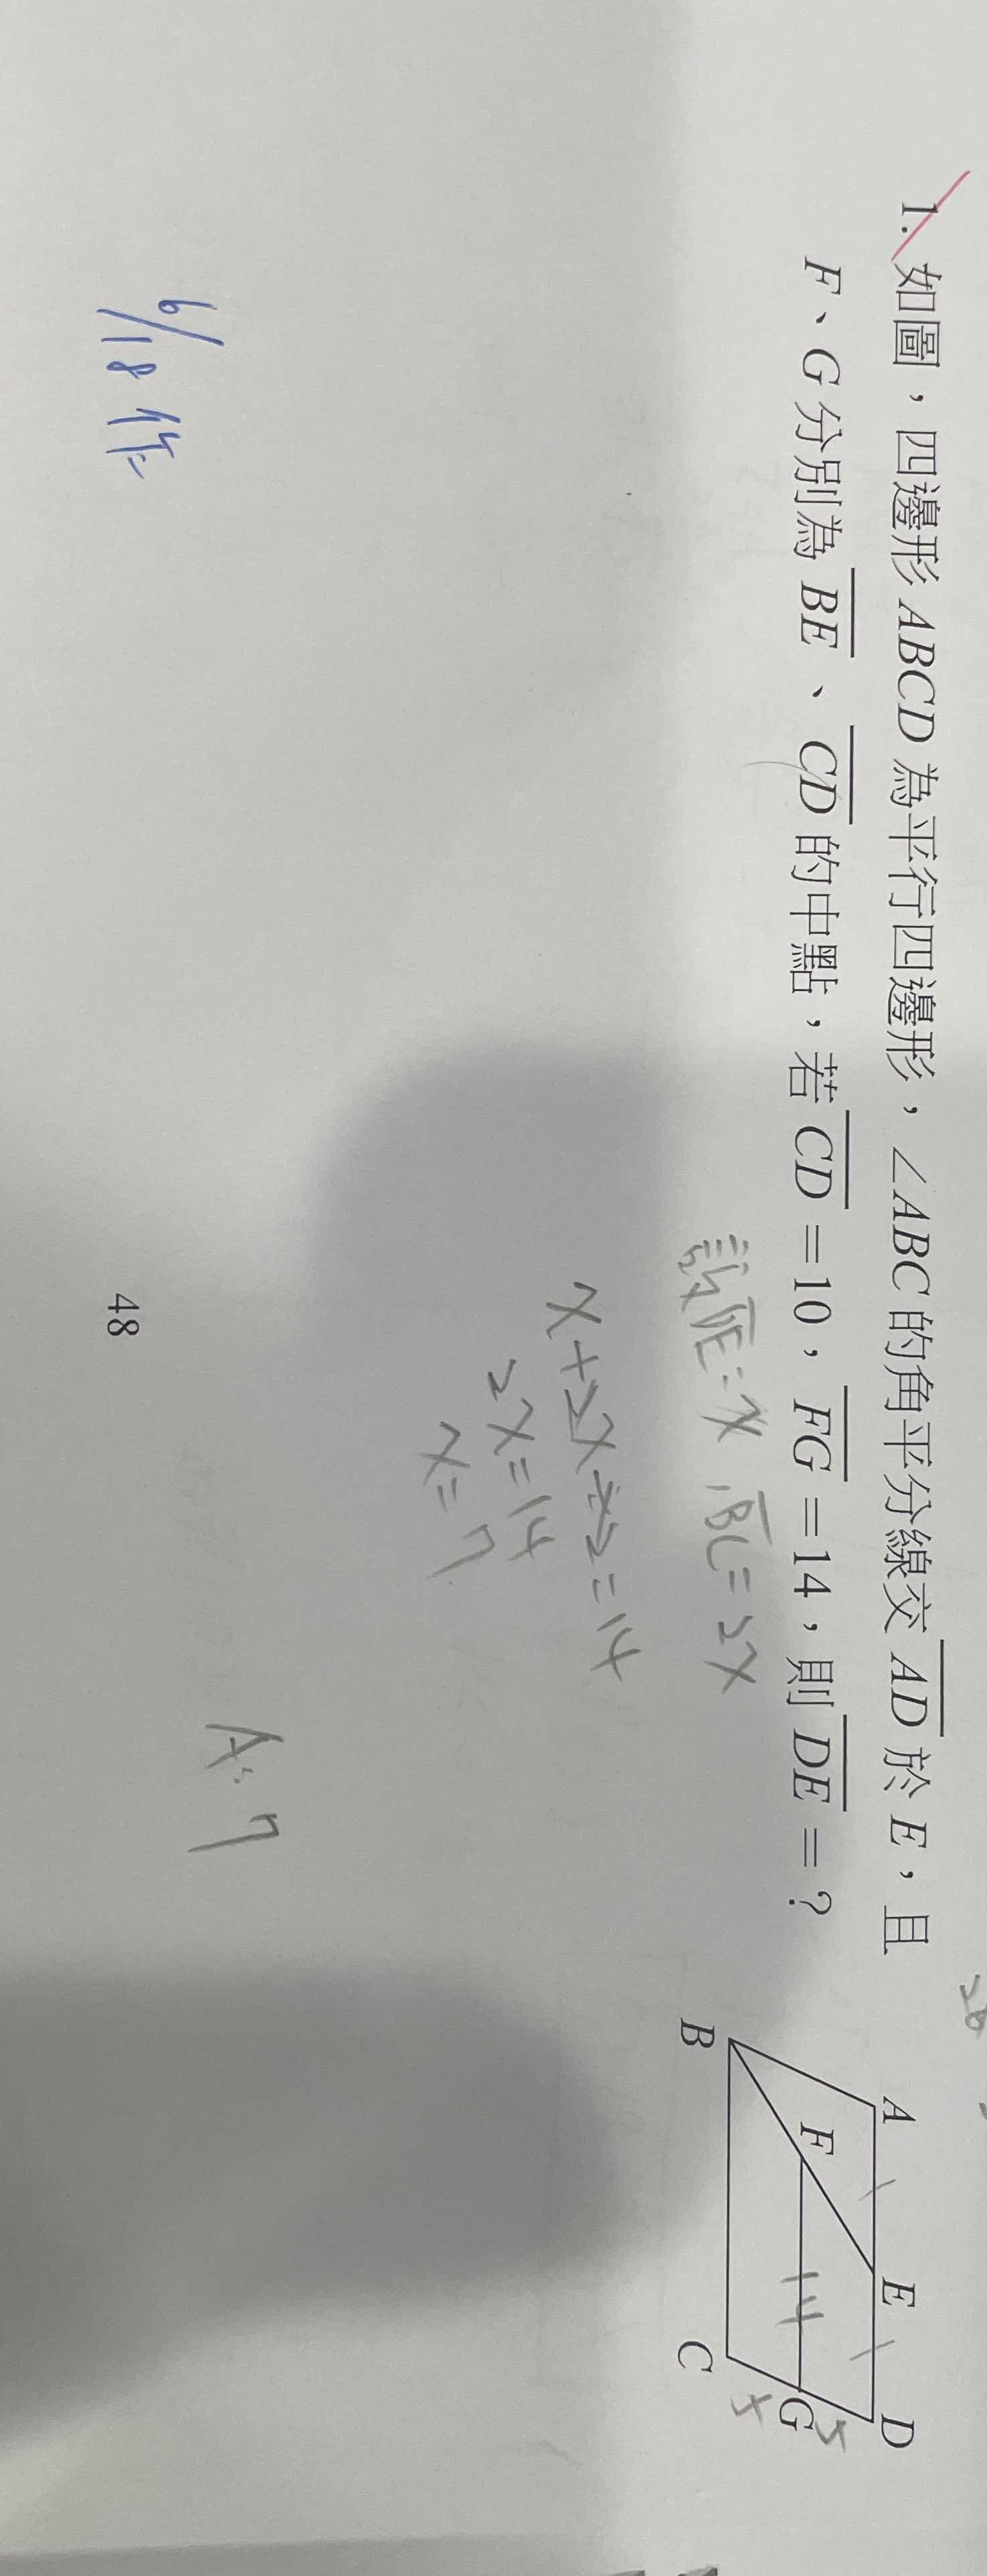 1. 如圖，四邊形 ABCD 為平行四邊形，∠ABC 的角平分線交 AD 於 E，且
F、G 分別為 BE、CD 的中點，若 CD＝10，FG＝14，則 DE＝？
A
E
D
F
14
G
5
5
B
C
設DE=x，BC=2x
x+2x÷2=14
2x=14
x=7
A:7
6/18 作
48